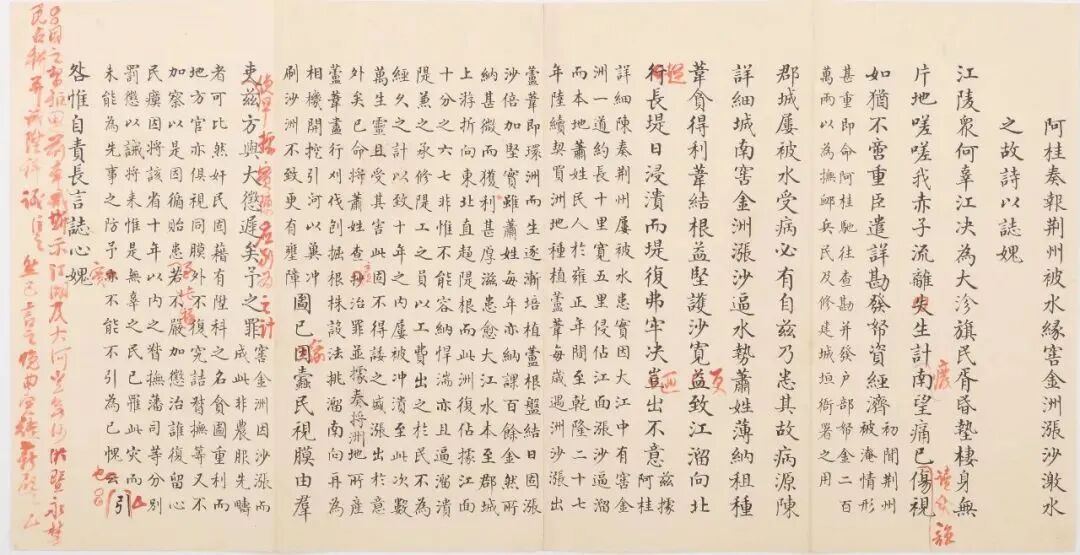 阿桂奏報荆州被水緣窖金洲漲沙激水
之故詩以誌媿
江陵衆何辜江决為大沴旗民胥昏墊棲身無
片地嗟嗟我赤子流離失生計南望痛已傷視
如猶不啻重臣遣詳勘發帑資經濟初聞荆州被淹情形
甚重即命阿桂馳往查勘并發户部帑金二百
萬兩以為撫卹兵民及修建城垣衙署之用
郡城屢被水受病必有自兹乃悉其故病源陳
詳細城南窖金洲漲沙逼水勢蕭姓薄納租種
葦貪得利葦結根益堅護沙寬益致江溜向北
行長堤日浸潰而堤復弗牢决豈出不意兹據阿桂
詳細陳奏荆州屢被水患實因大江中有窖金
洲一道約長十里寬五里侵佔江面漲沙逼溜
而本地蕭姓民人於雍正年間至乾隆二十七
年陸續契買洲地種植蘆葦每歲遇洲沙漲出
蘆葦即環洲而生逐漸培植蘆根盤結日固漲
沙倍加堅實雖蕭姓每年亦納課百餘金然所
納甚微而獲利甚厚滋患愈大江水本至郡城
上游折向東北直趨隄根而此洲復佔據江面
十分之六七非惟不能容納悍湍亦且逼溜潰
隄兼之承修隄工之員以工費出之於民不為
經久之計以致十年之内屢被冲潰至此次數
萬生靈且受其害此固不得諉之盛漲出於意
外矣已命將蕭姓查抄治罪並據奏將洲地所產
蘆葦盡行刈伐刨掘根株設法挑溜南向再為
相機開挖引河以冀冲
刷沙洲不致更有壅障圖已因蠹民視膜由羣
吏兹方與大懲遲矣予之罪窖金洲因沙漲而成此非農服先疇
者可比然奸民固藉有陞科之名貪圖重利而
地方官亦俱視同膜外不復究詰督撫等又不
加察以是因循貽患若不嚴加懲治誰復留心
民瘼因將該省十年以内之督撫藩司等分別
罰懲以誡將来惟是無辜之民已罹此突而
未能為先事之防予亦不能不引為己愧云
咎惟自責長言誌心媿